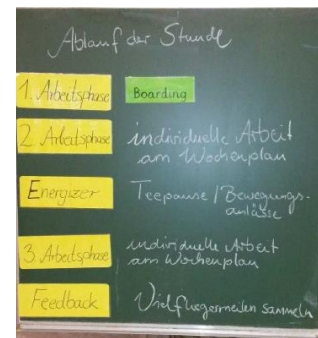 Ablauf der Stunde
1. Arbeitsphase Boarding
2. Arbeitsphase individuelle Arbeit
am Wochenplan
Energizer Teepause / Bewegungs-
anlässe
3. Arbeitsphase individuelle Arbeit
am Wochenplan
Feedback Vielfliegermeilen sammeln